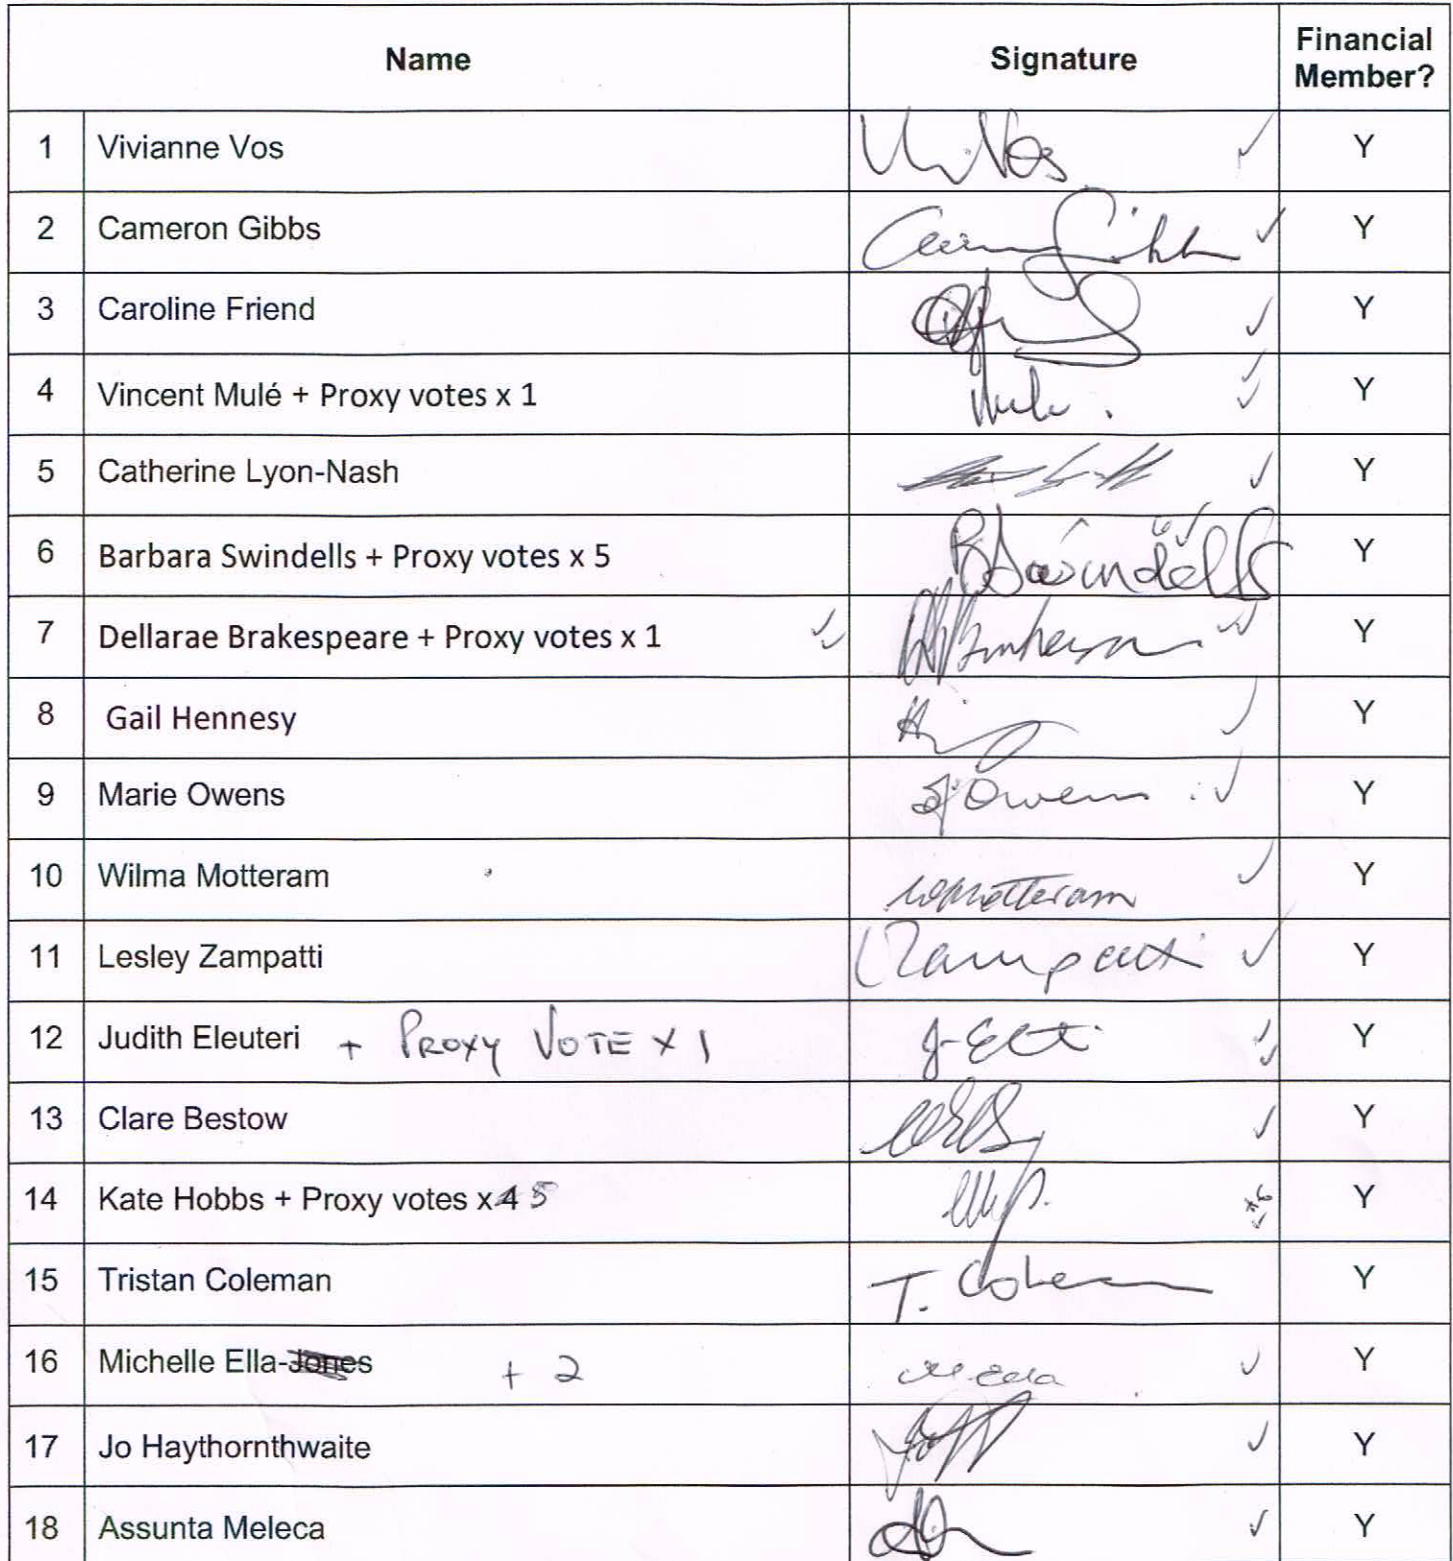 Name Signature Financial Member?
1 Vivianne Vos Y
2 Cameron Gibbs Y
3 Caroline Friend Y
4 Vincent Mulé + Proxy votes x 1 Y
5 Catherine Lyon-Nash Y
6 Barbara Swindells + Proxy votes x 5 BSwindells Y
7 Dellarae Brakespeare + Proxy votes x 1 Y
8 Gail Hennesy Y
9 Marie Owens Owens Y
10 Wilma Motteram WMotteram Y
11 Lesley Zampatti LZampatti Y
12 Judith Eleuteri + PROXY VOTE X 1 Y
13 Clare Bestow Y
14 Kate Hobbs + Proxy votes x 4 5 Y
15 Tristan Coleman T. Coleman Y
16 Michelle Ella-Jones + 2 M Ella Y
17 Jo Haythornthwaite Y
18 Assunta Meleca Y